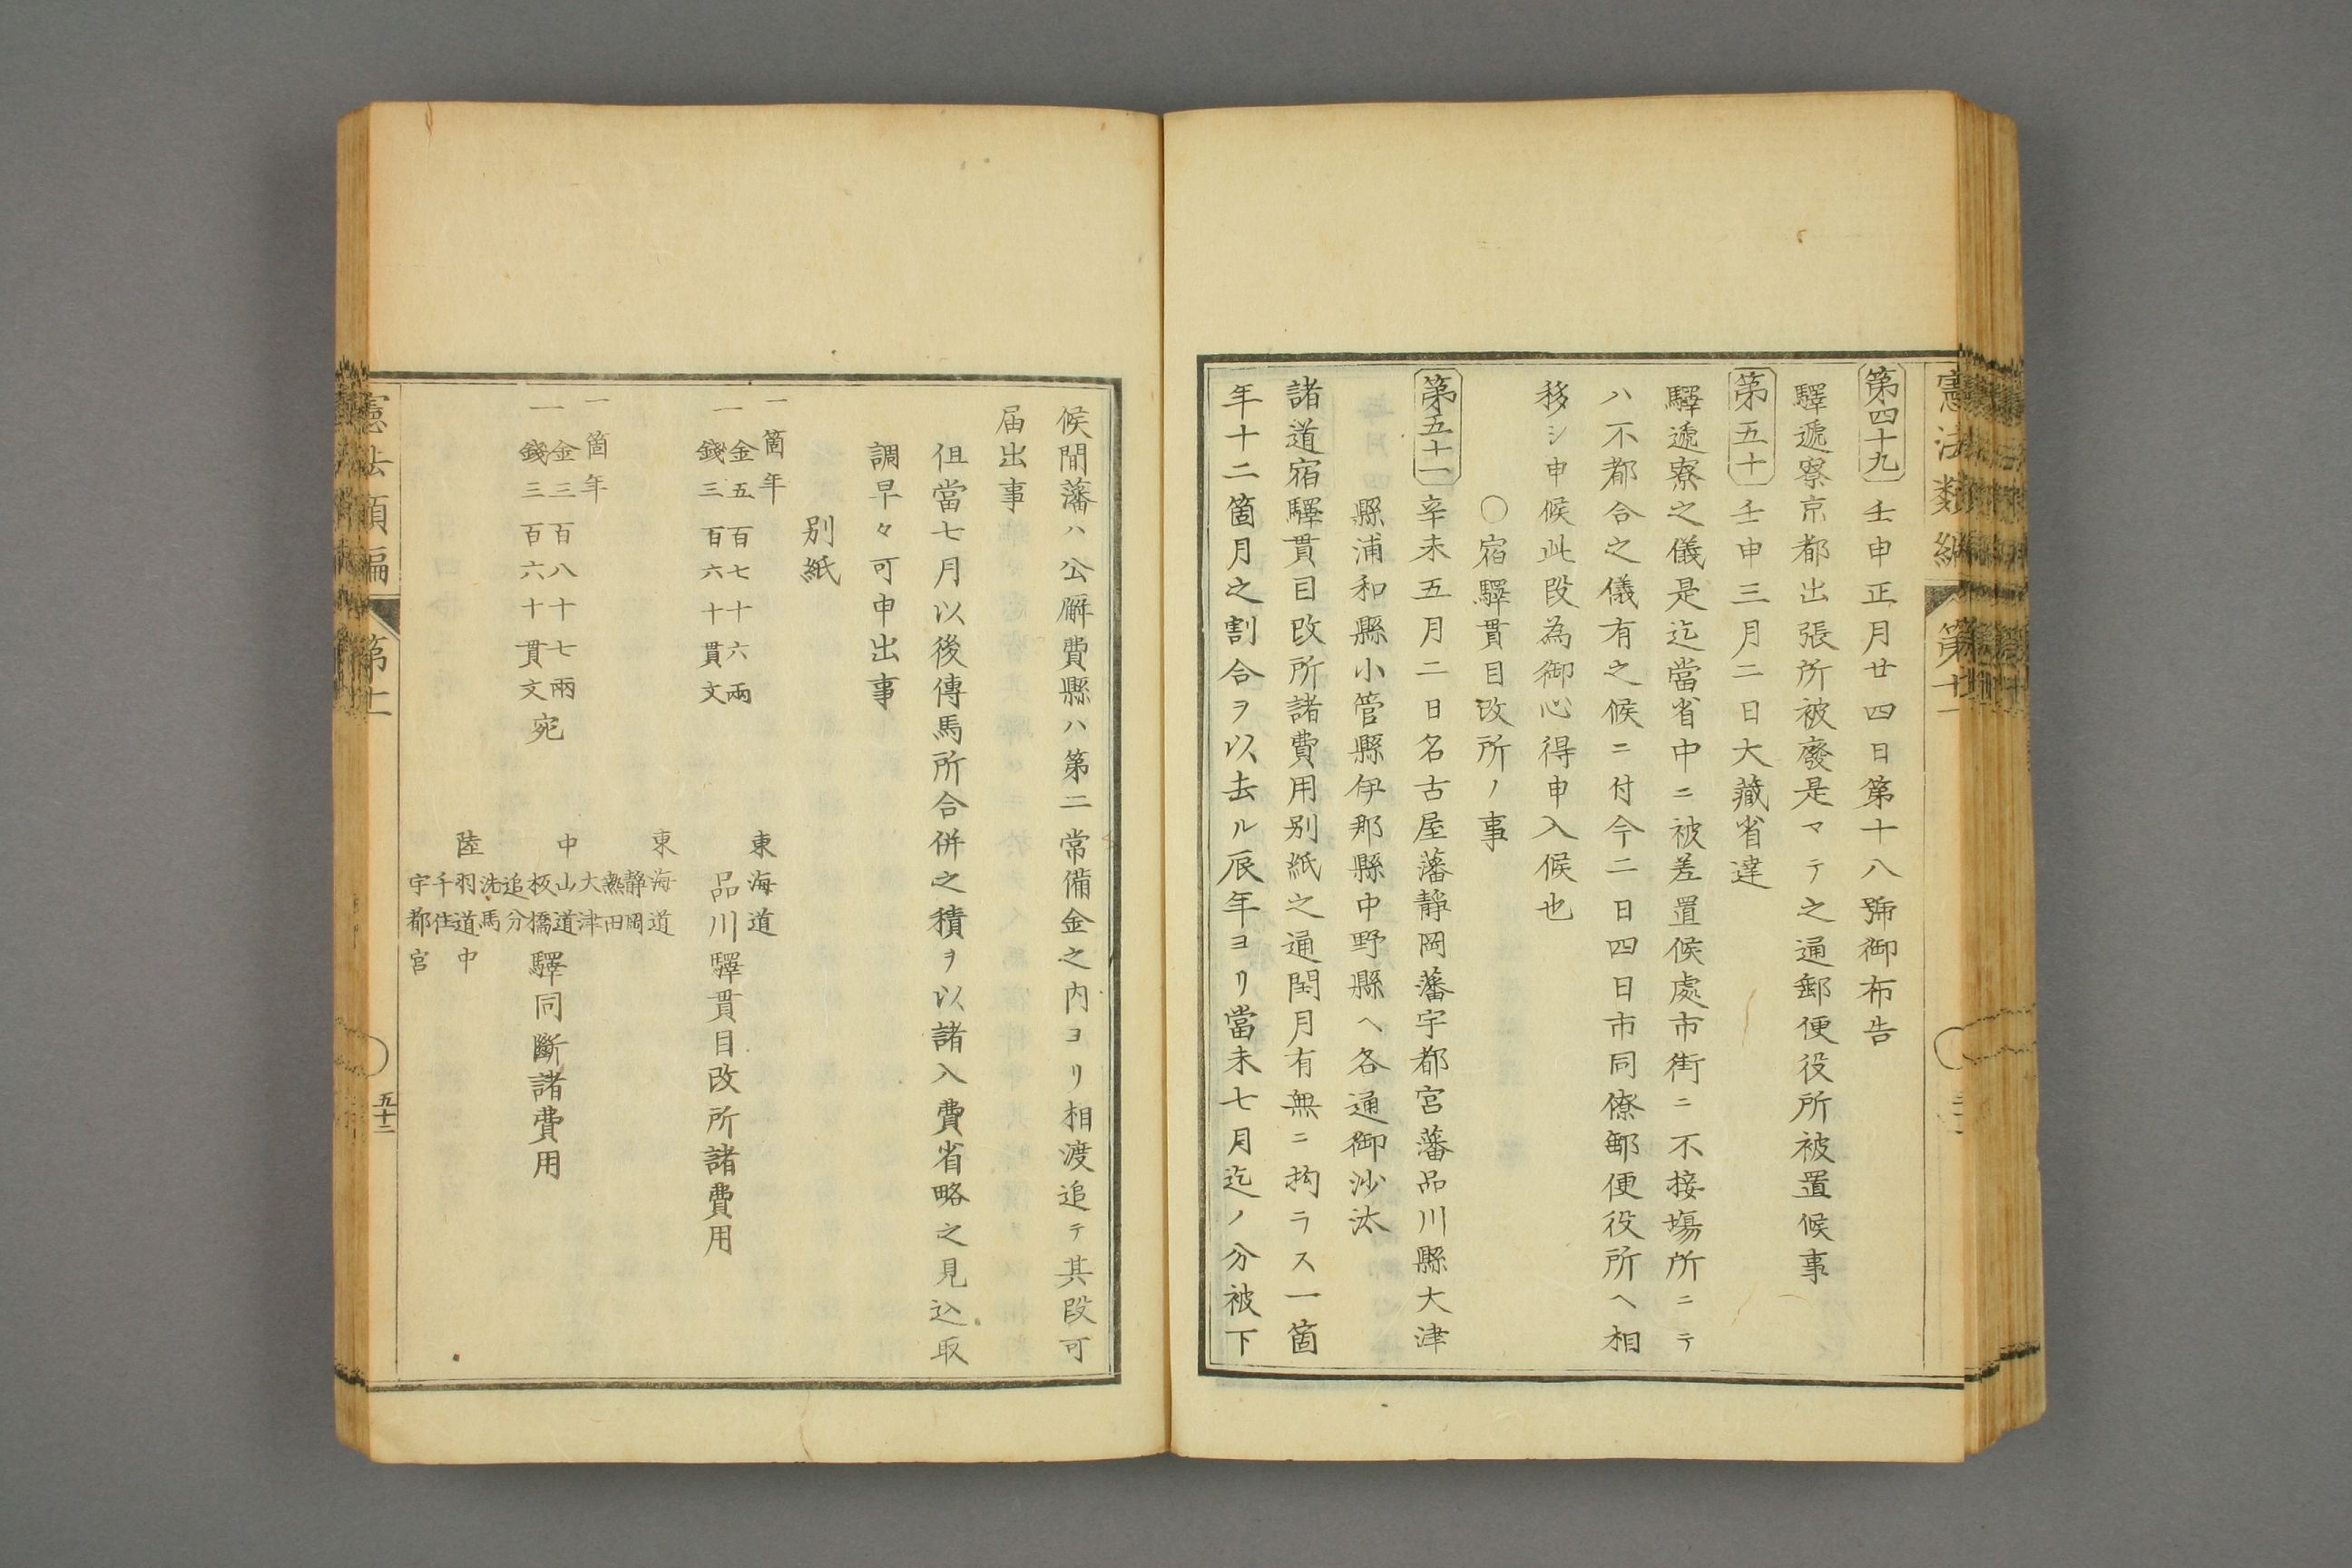 憲法類編 第十一
第四十九 壬申正月廿四日第十八號御布告
驛遞寮京都出張所被廢是マテ之通郵便役所被置候事
第五十 壬申三月二日大藏省達
驛遞寮之儀是迄當省中ニ被差置候處市街ニ不接塲所ニテ
ハ不都合之儀有之候ニ付今二日四日市同僚郵便役所ヘ相
移シ申候此段為御心得申入候也
○宿驛貫目改所ノ事
第五十一 辛未五月二日名古屋藩靜岡藩宇都宮藩品川縣大津
縣浦和縣小管縣伊那縣中野縣ヘ各通御沙汰
諸道宿驛貫目改所諸費用別紙之通閏月有無ニ拘ラス一箇
年十二箇月之割合ヲ以去ル辰年ヨリ當未七月迄ノ分被下
候間藩ハ公廨費縣ハ第二常備金之内ヨリ相渡追テ其段可
届出事
伹當七月以後傳馬所合併之積ヲ以諸入費省略之見込取
調早々可申出事
別紙
一箇年 東海道
金五百七十六兩
一錢三百六十貫文 品川驛貫目改所諸費用
東海道
靜岡
熱田
一箇年 大津
金三百八十七兩 中山道
一錢三百六十貫文宛 板橋驛同斷諸費用
追分
洗馬
陸羽道中
千住
宇都宮
憲法類編 第十一 五十二